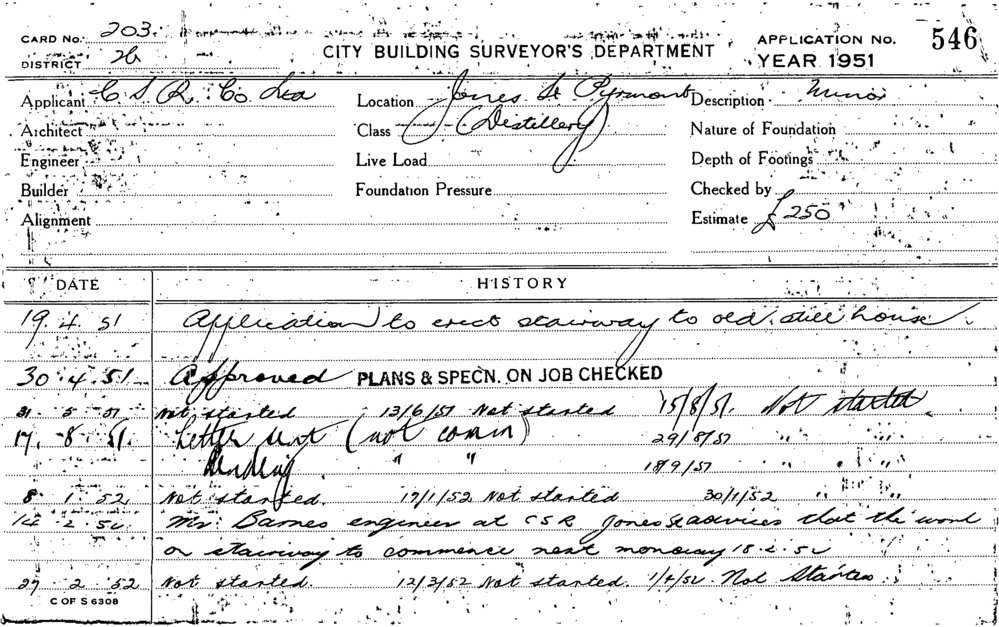 CARD No. 203.
DISTRICT 2b
CITY BUILDING SURVEYOR'S DEPARTMENT
APPLICATION No. 546
YEAR 1951
Applicant C S R. Co. Ltd Location Jones St Pyrmont Description Minor
Architect Class (Distillery) Nature of Foundation
Engineer Live Load Depth of Footings
Builder Foundation Pressure Checked by
Alignment Estimate £250
DATE HISTORY
19.4.51 Application to erect stairway to old still house.
30.4.51 Approved PLANS & SPECN. ON JOB CHECKED
31. 5 51 Not started 13/6/51 Not started 15/8/51. Not started.
17. 8. 51. Letter sent (not comm) 29/8/51 " "
Pending " " 18/9/51 " "
8 1 52 Not started. 17/1/52 Not started 30/1/52 " "
14 2 52 Mr. Barnes engineer at CSR Jones St advises that the work
on stairway to commence next monday 18.2.52
27 2 52 Not started. 12/3/52 Not started. 1/4/52 Not Started
C OF S 6308